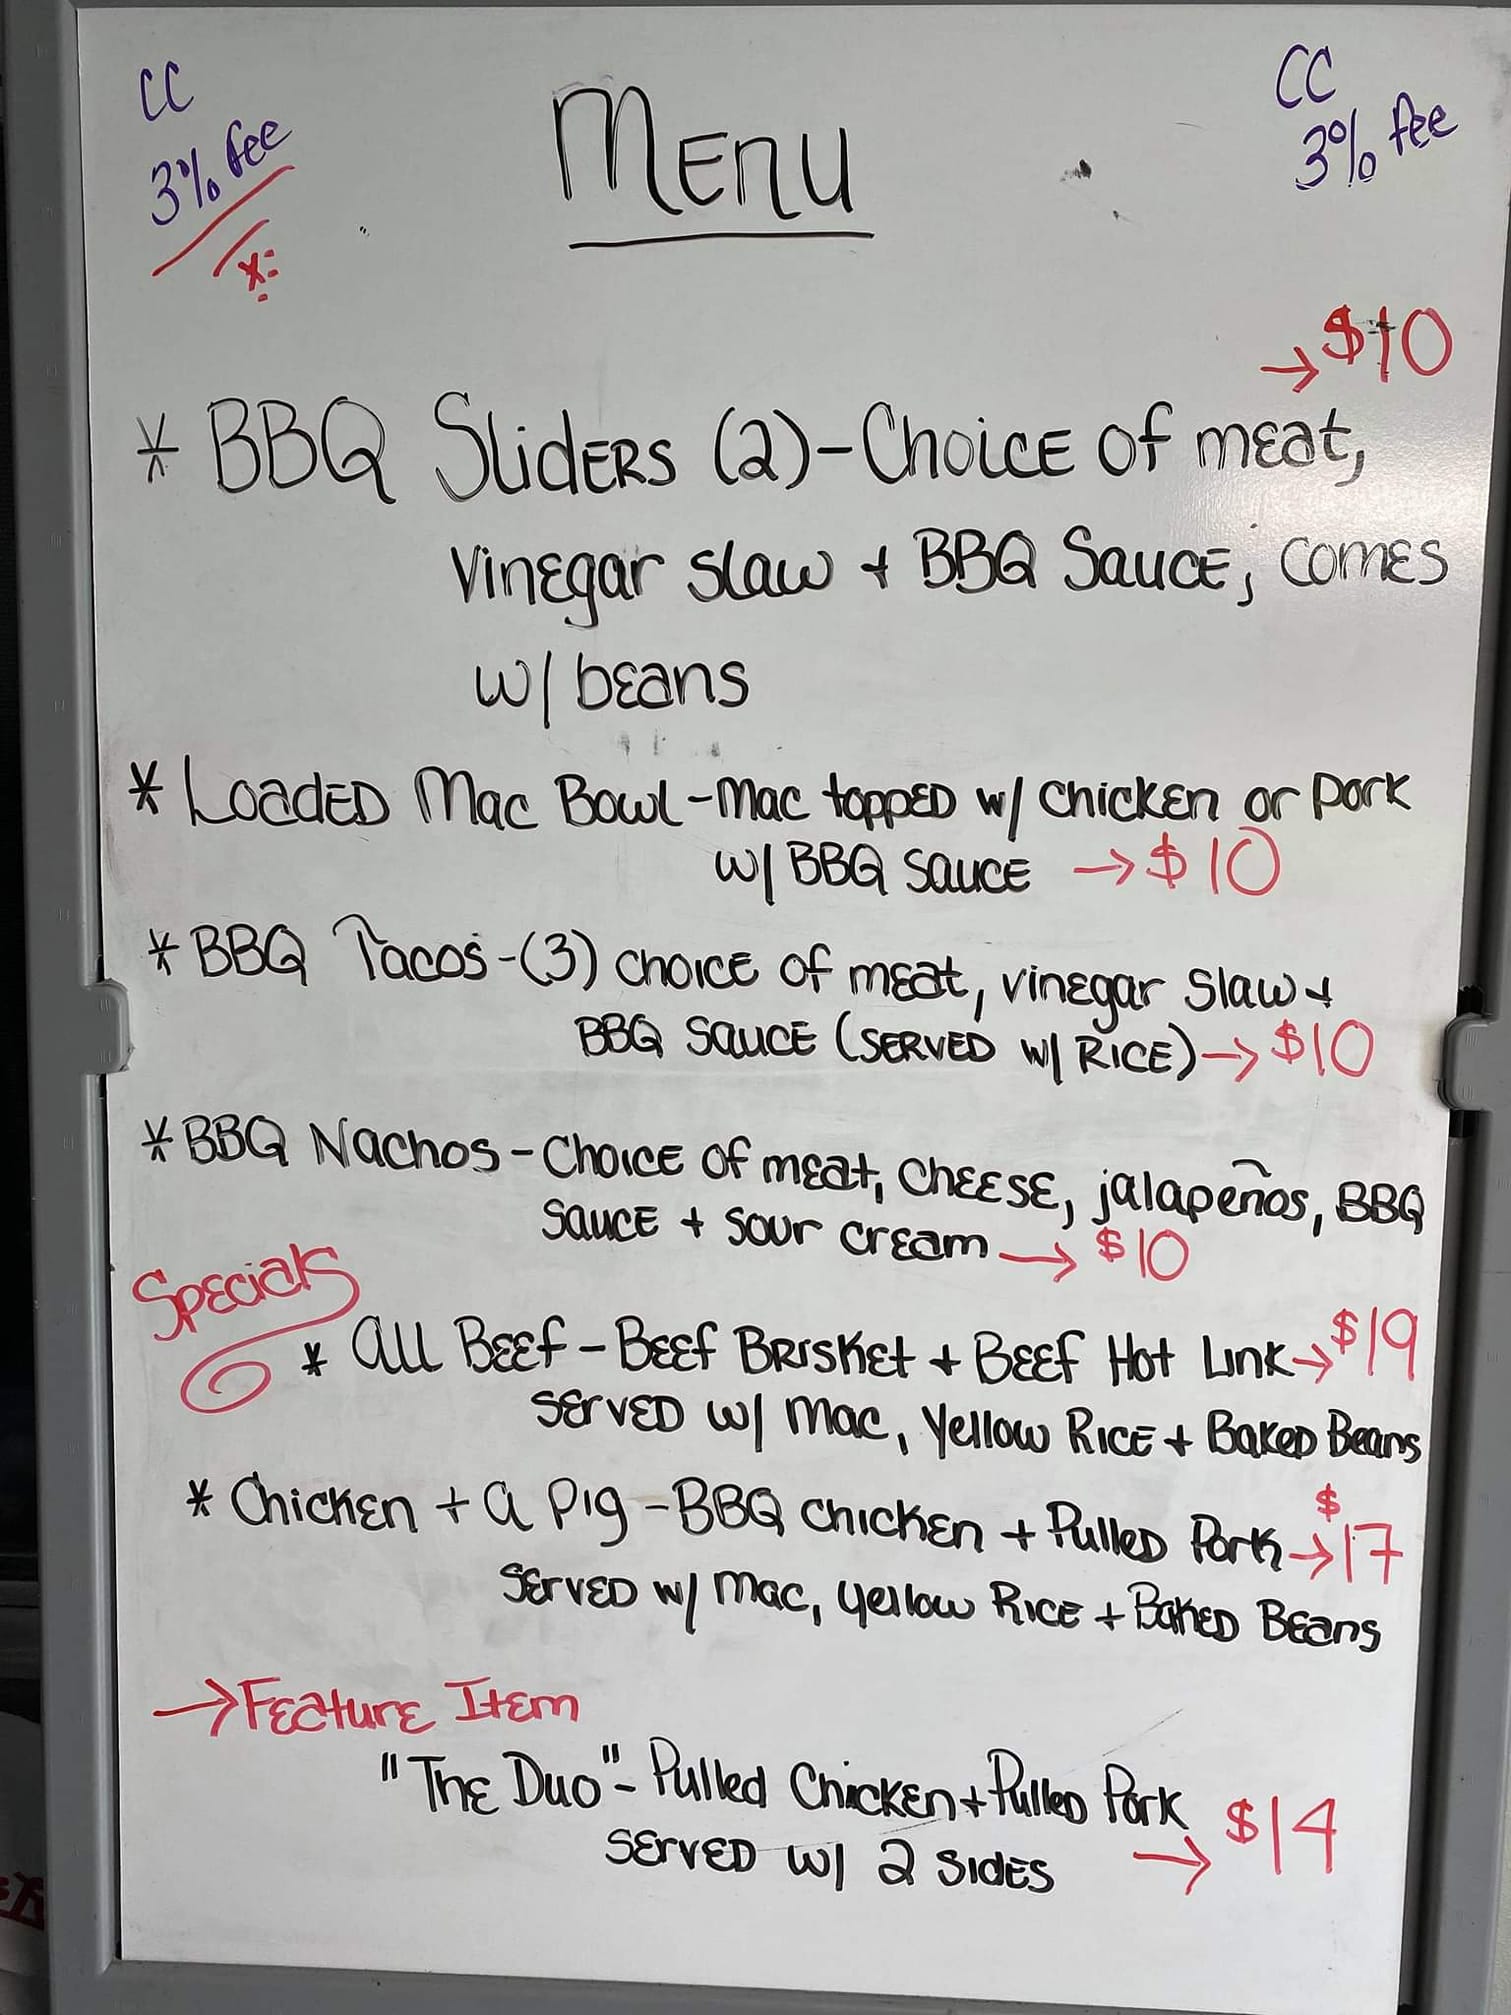 CC
3% fee
CC
3% fee
Menu
$10
* BBQ Sliders (2) - Choice of meat,
vinegar slaw + BBQ Sauce, comes
w/ beans
* Loaded Mac Bowl - Mac topped w/ chicken or pork
w/ BBQ sauce → $10
* BBQ Tacos - (3) choice of meat, vinegar slaw +
BBQ Sauce (served w/ Rice) → $10
* BBQ Nachos - Choice of meat, cheese, jalapeños, BBQ
sauce + sour cream → $10
Specials
* All Beef - Beef Brisket + Beef Hot Link → $19
served w/ mac, yellow Rice + Baked Beans
* Chicken + a Pig - BBQ chicken + Pulled Pork → $17
served w/ mac, yellow Rice + Baked Beans
→ Feature Item
"The Duo" - Pulled Chicken + Pulled Pork
served w/ 2 sides → $14